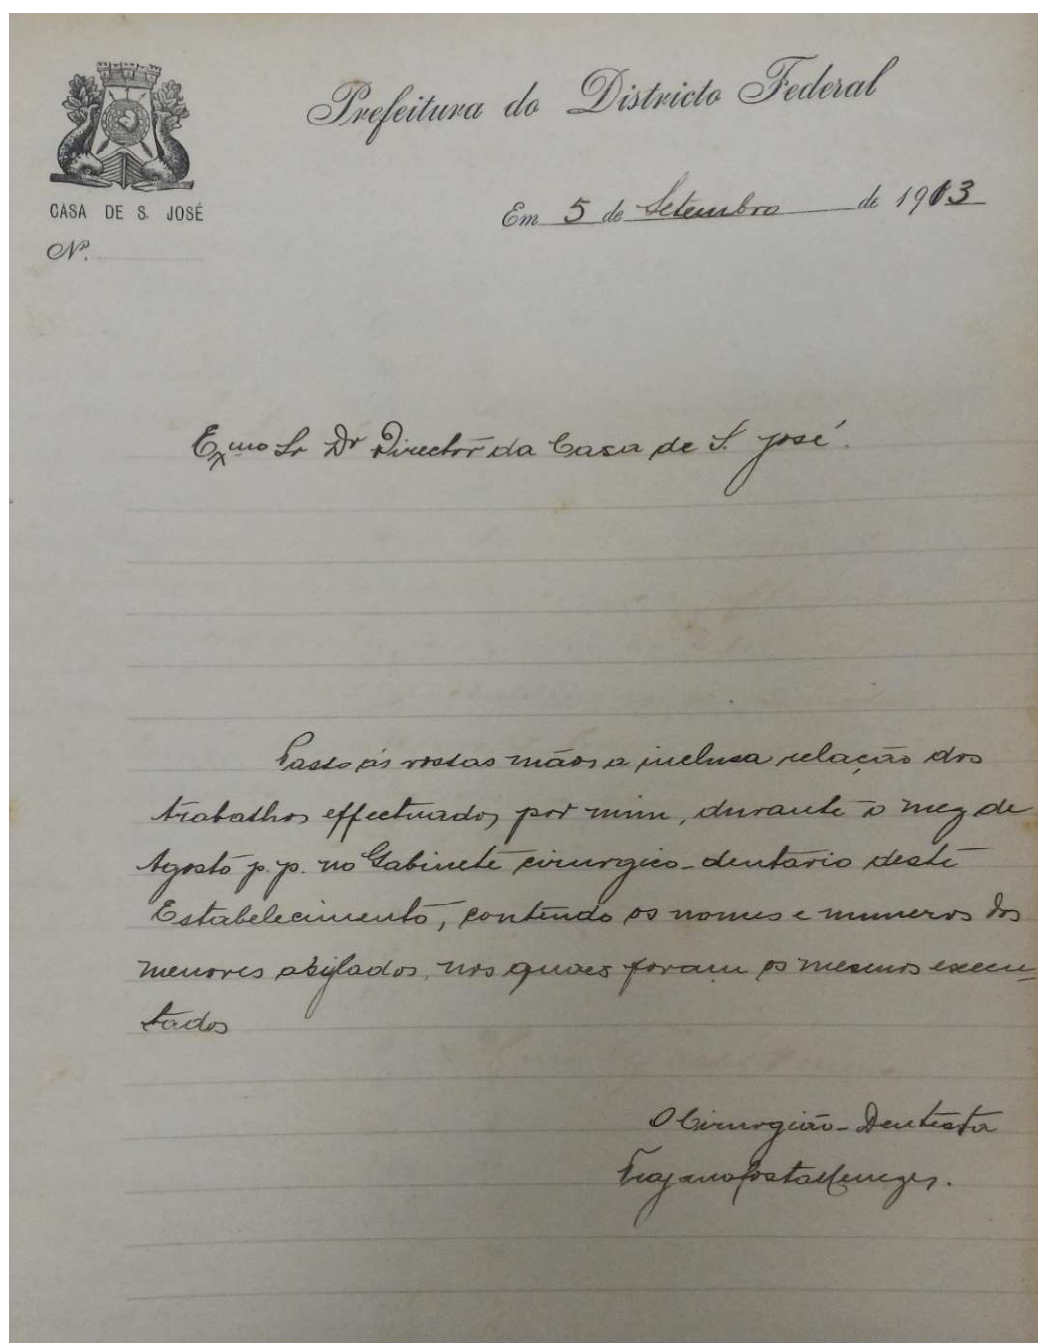 Prefeitura do Districto Federal
CASA DE S. JOSÉ
Em 5 de Setembro de 1913
Nº.
Exmo Sr Dr Director da Casa de S. José.
Passo ás vossas mãos a inclusa relação dos
trabalhos effectuados por mim, durante o mez de
Agosto p.p. no Gabinete cirurgico-dentario deste
Estabelecimento, contendo os nomes e numeros dos
menores asylados, nos quaes foram os mesmos execu-
tados
O Cirurgião-Dentista
Trajano Costa Menezes.